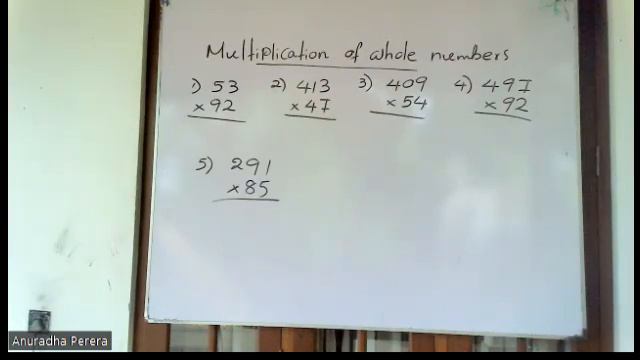 Multiplication of whole numbers
1) 53 2) 413 3) 409 4) 497
×92 ×47 ×54 ×92
5) 291
×85
Anuradha Perera